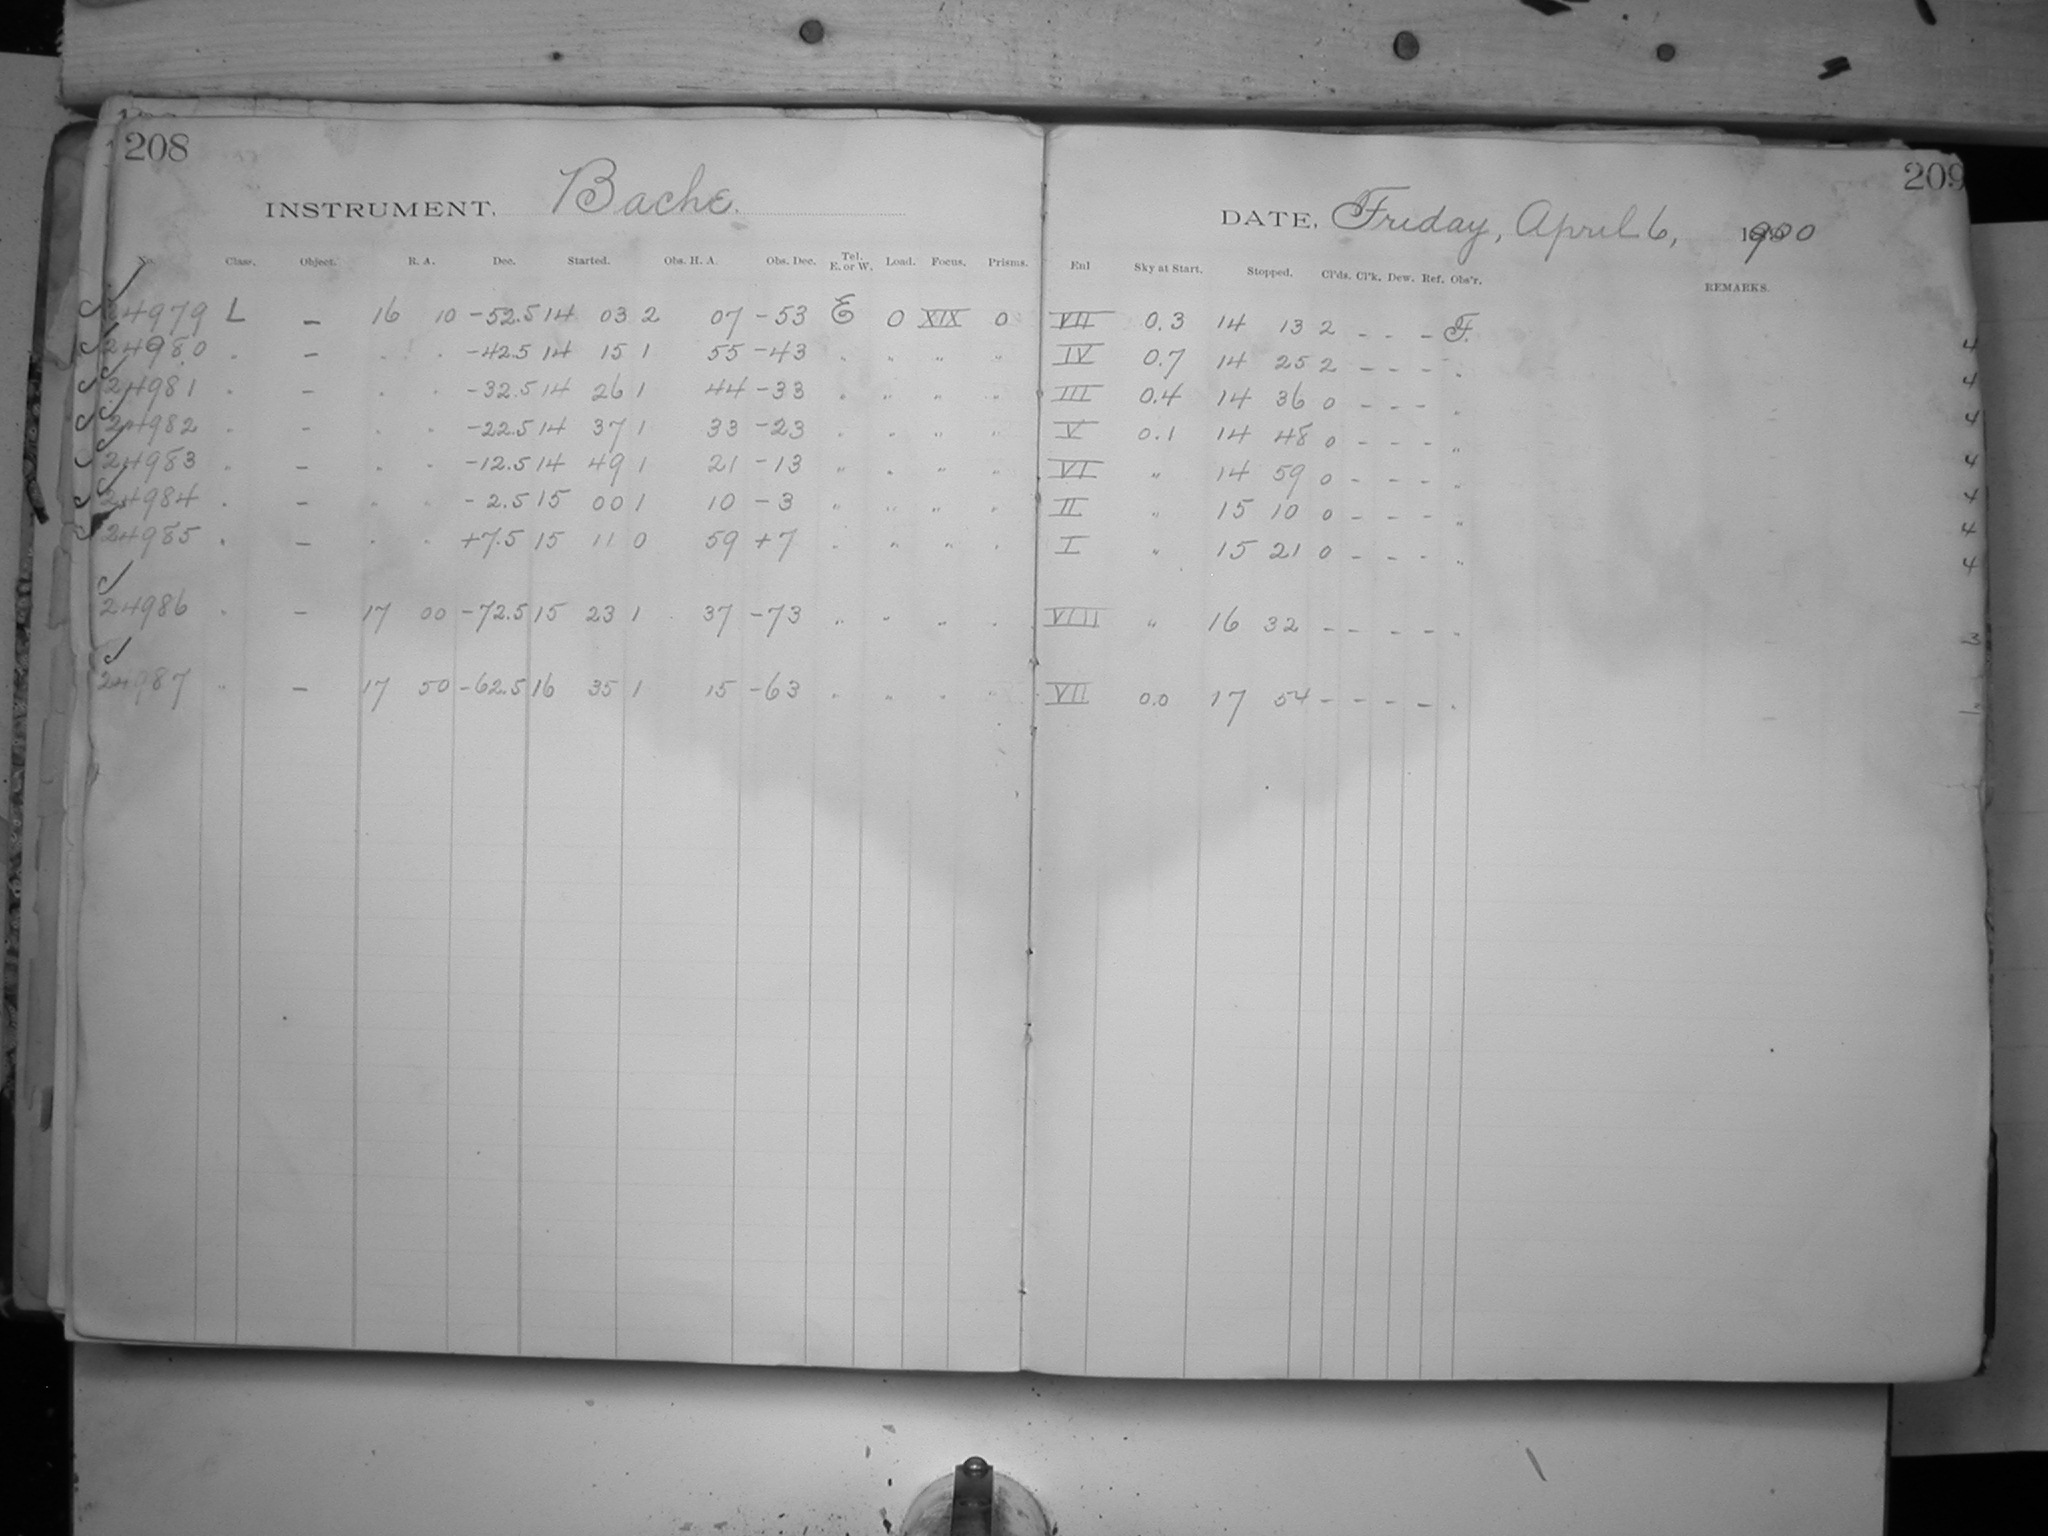 208
INSTRUMENT. Bache.
No. Class. Object. R. A. Dec. Started. Obs. H. A. Obs. Dec. Tel. E. or W. Load. Focus. Prisms.
24979 L – 16 10 -52.5 14 03 2 07 -53 E 0 XIX 0
24980 " – " " -42.5 14 15 1 55 -43 " " " "
24981 " – " " -32.5 14 26 1 44 -33 " " " "
24982 " – " " -22.5 14 37 1 33 -23 " " " "
24983 " – " " -12.5 14 49 1 21 -13 " " " "
24984 " – " " -2.5 15 00 1 10 -3 " " " "
24985 " – " " +7.5 15 11 0 59 +7 " " " "
24986 " – 17 00 -72.5 15 23 1 37 -73 " " " "
24987 " – 17 50 -62.5 16 35 1 15 -63 " " " "
209
DATE, Friday, April 6, 1900
Enl Sky at Start. Stopped. Cl'ds. Cl'k. Dew. Ref. Obs'r. REMARKS.
VII 0.3 14 13 2 – – – F.
IV 0.7 14 25 2 – – – " 4
III 0.4 14 36 0 – – – " 4
V 0.1 14 48 0 – – – " 4
VI " 14 59 0 – – – " 4
II " 15 10 0 – – – " 4
I " 15 21 0 – – – " 4
4
VIII " 16 32 – – – – " 3
VII 0.0 17 54 – – – – "